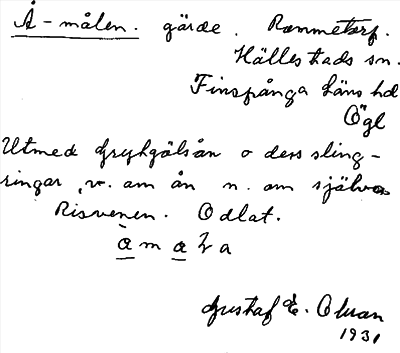 Å-målen. gärde. Rämmetorp.
Hällestads sn.
Finspånga läns hd
Ögl
Utmed Grythgölsån o dess sling-
ringar, v. om ån n. om själva
Risvenen. Odlat.
Gustaf E. Olsson
1931